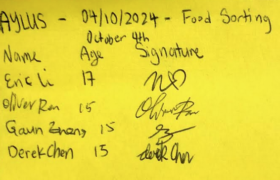 AYLUS - 04/10/2024 - Food Sorting
October 4th
Name Age Signature
Eric Li 17
Oliver Ran 15 Oliver Ran
Gavin Zhang 15
Derek Chen 15 Derek Chen